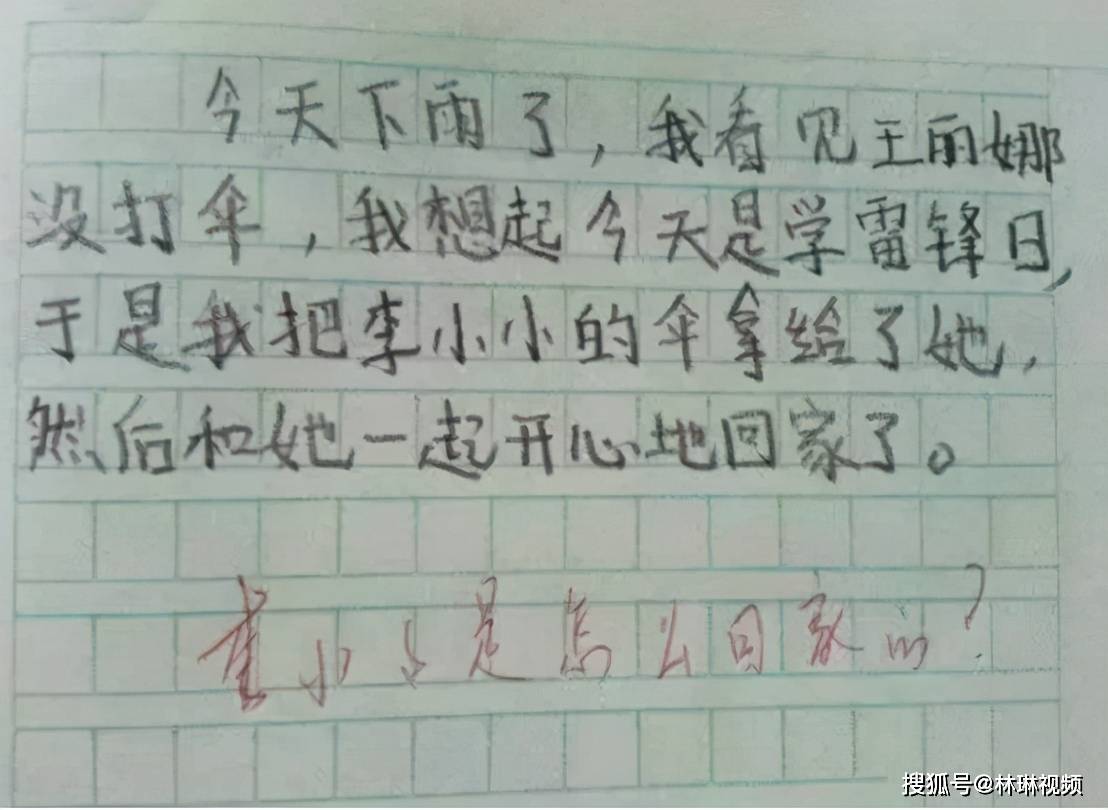 今天下雨了，我看见王丽娜
没打伞，我想起今天是学雷锋日，
于是我把李小小的伞拿给了她，
然后和她一起开心地回家了。
李小小是怎么回家的？
搜狐号@林琳视频